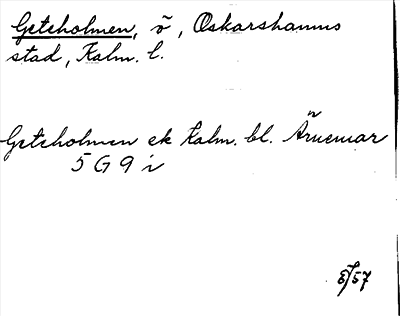 Geteholmen, ö, Oskarshamns
stad, Kalm. l.
Geteholmen ek Kalm. bl. Ärnemar
5 G 9 i